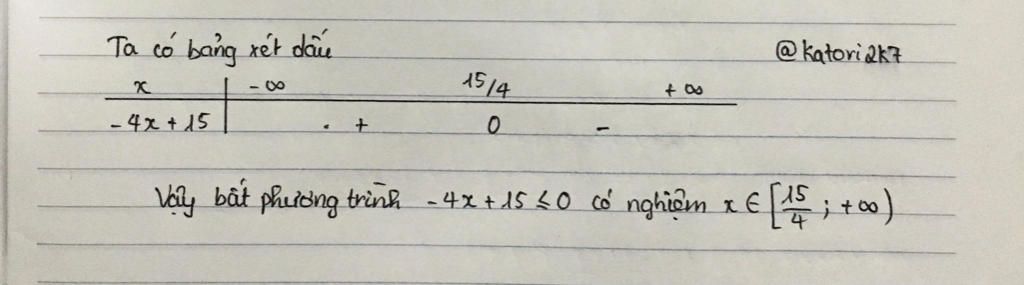 Ta có bảng xét dấu @katori2k7
x -∞ 15/4 +∞
-4x+15 + 0 -
Vậy bất phương trình -4x+15 ≤ 0 có nghiệm x ∈ [15/4 ; +∞)